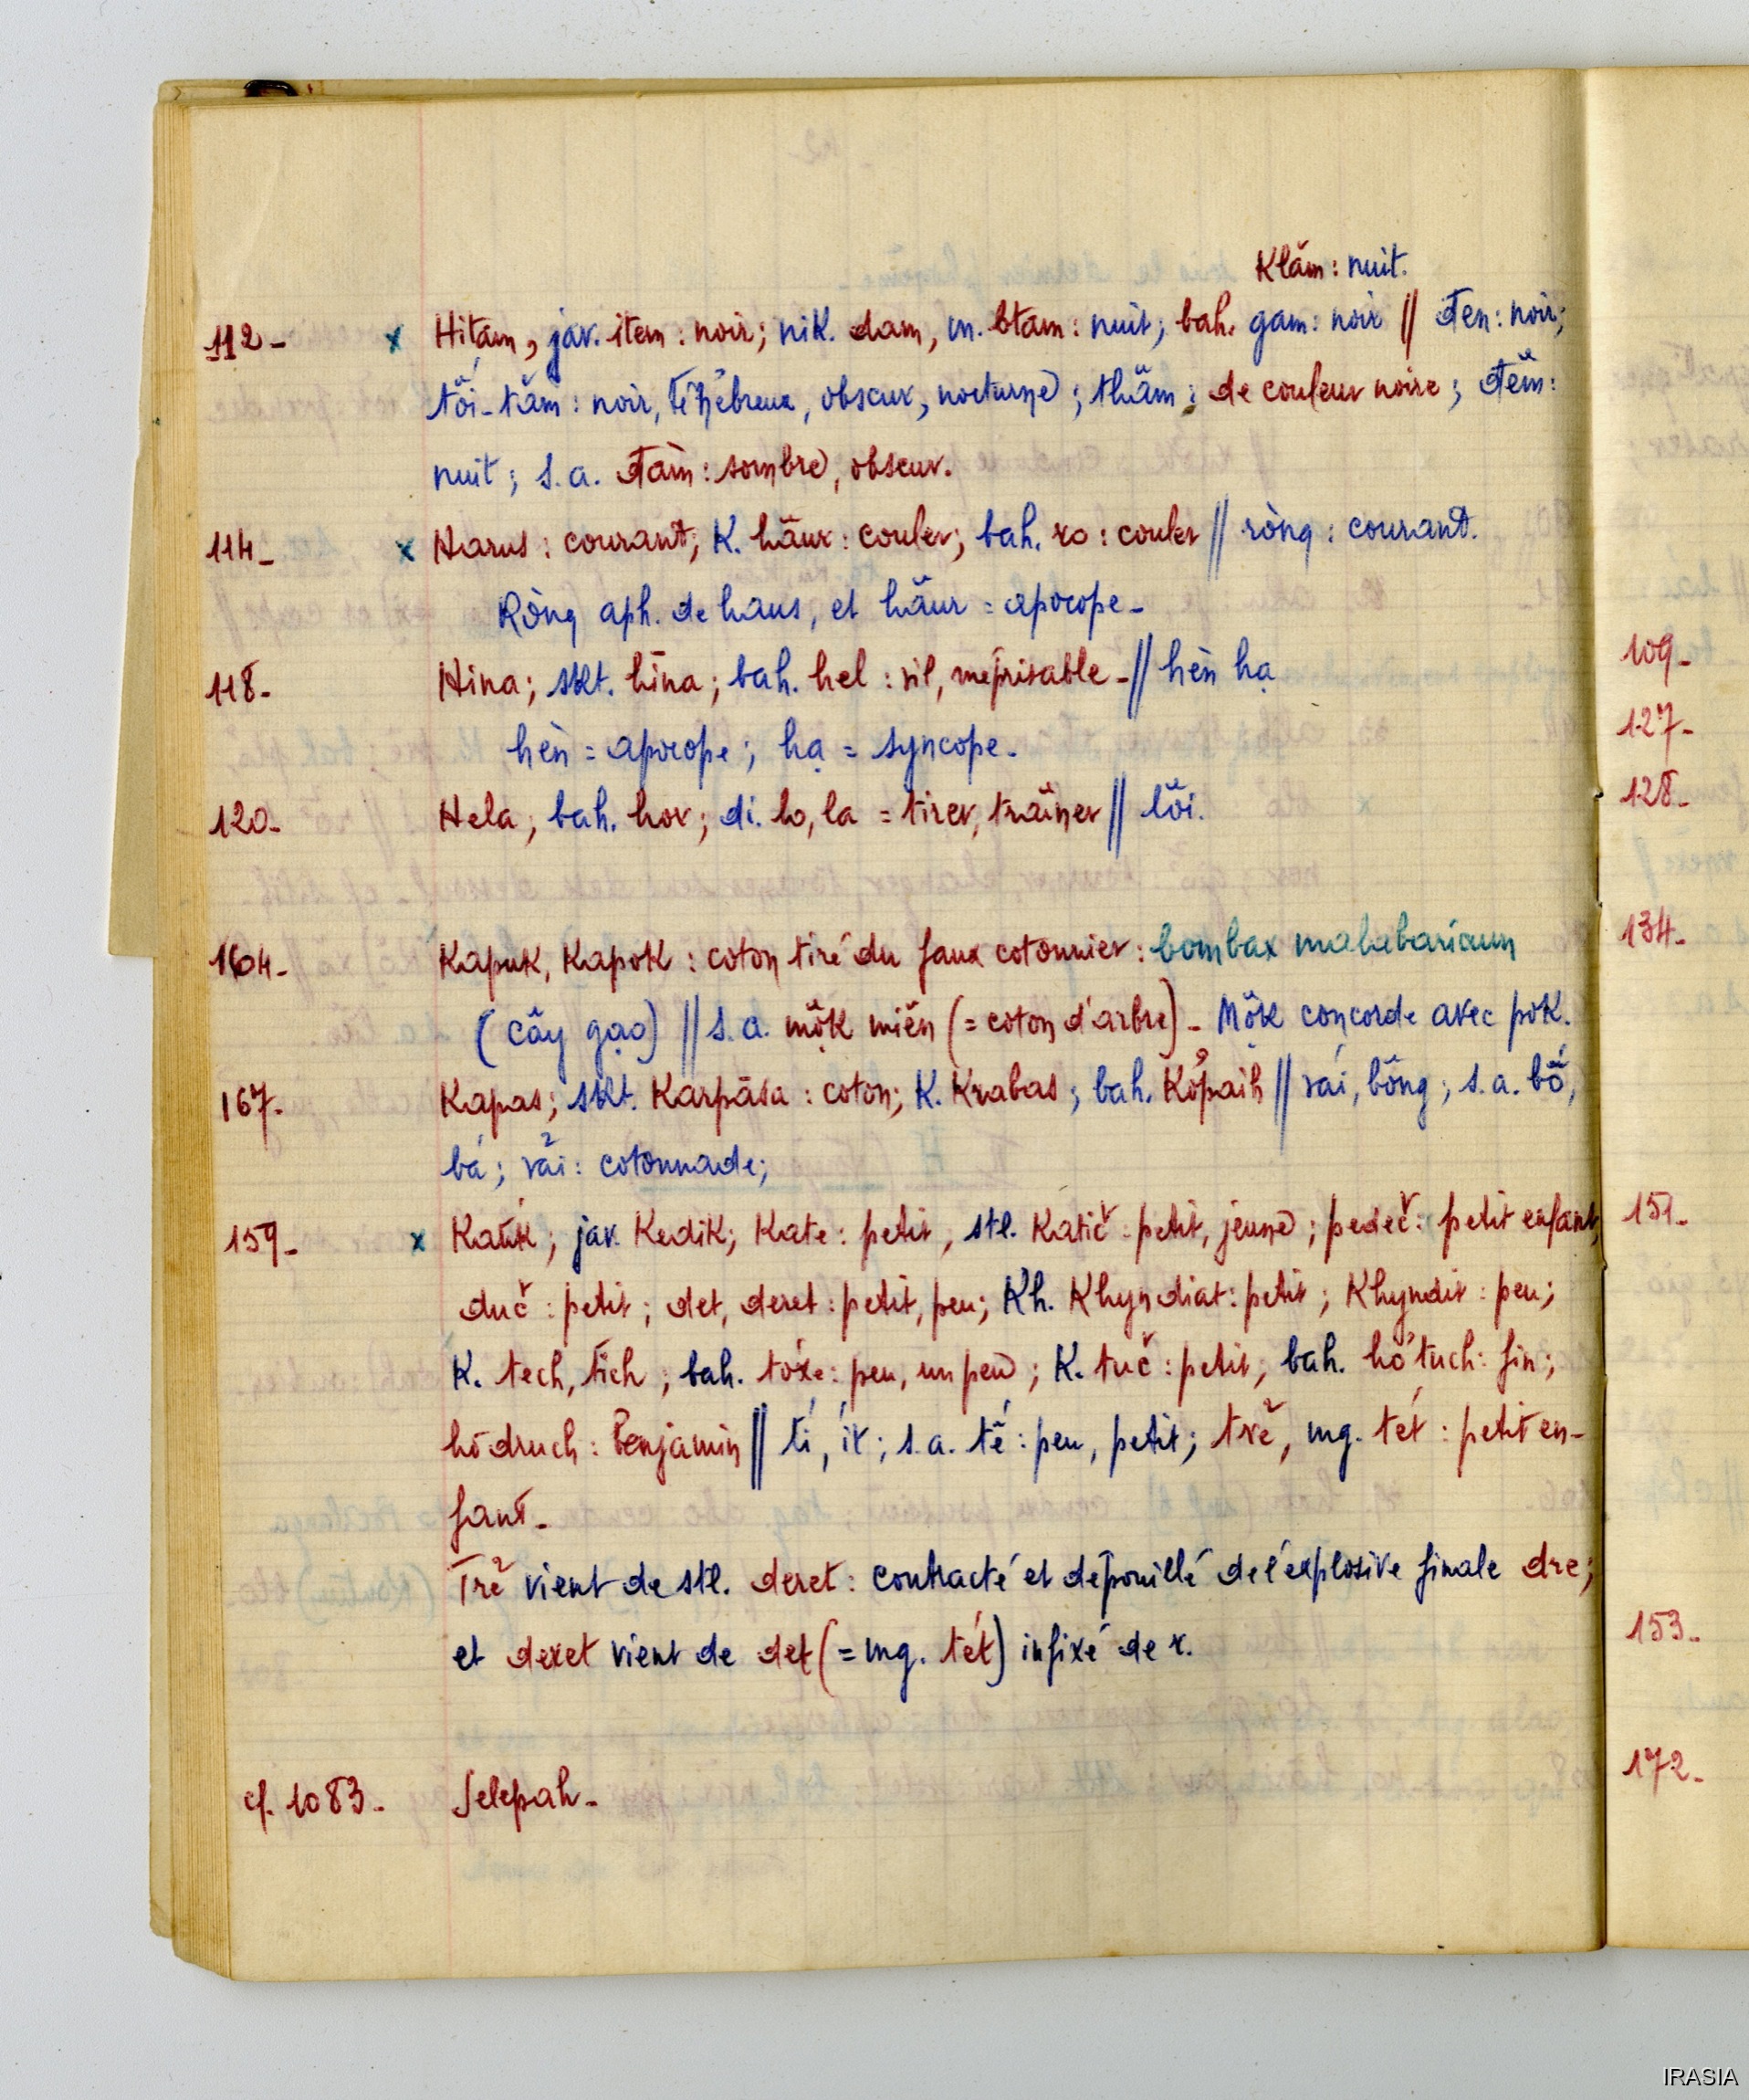 Klăm : nuit.
112 - x Hitam, jav. item : noir; nik. dam, m. btam : nuit; bah. găm : noir // đen : noir;
tối-tăm : noir, ténébreux, obscur, nocturne; thâm : de couleur noire; đêm :
nuit; s.a. đàm : sombre, obscur.
114 - x Harus : courant; K. hăur : couler; bah. ro : couler // ròng : courant.
Ròng aph. de haus, et hăur = apocope -
118 - Hina; skt. hīna; bah. hel : vil, méprisable - // hèn hạ
hèn = apocope; hạ = syncope -
120 - Hela; bah. hor; di. lo, la = tirer, traîner // lôi.
164 - Kapuk, Kapok : coton tiré du faux cotonnier : bombax malabaricum
(cây gạo) // s.a. mộk miên (= coton d'arbre) - Mộk concorde avec pok.
167 - Kapas; skt. Karpāsa : coton; K. Krabas; bah. Kopaih // vái, bông; s.a. bố,
bá; vải : cotonnade;
159 - x Katik; jav. Kedik; Kate : petit, stl. Katič : petit, jeune; pedeč : petit enfant,
duč : petit; det, deret : petit, peu; Kh. Khyndiat : petit; Khyndit : peu;
K. tech, tich; bah. toxe : peu, un peu; K. tuč : petit; bah. hơtuch : fin;
hodruch : Benjamin // tí, ít; s.a. tế : peu, petit; trẻ, mg. tét : petit en-
fant -
Trẻ vient de stl. deret : contracté et dépouillé de l'explosive finale dre;
et deret vient de det (= mg. tét) infixé de r.
cf. 1083 - Selepah -
109 -
127 -
128 -
134 -
151 -
153 -
172 -
IRASIA